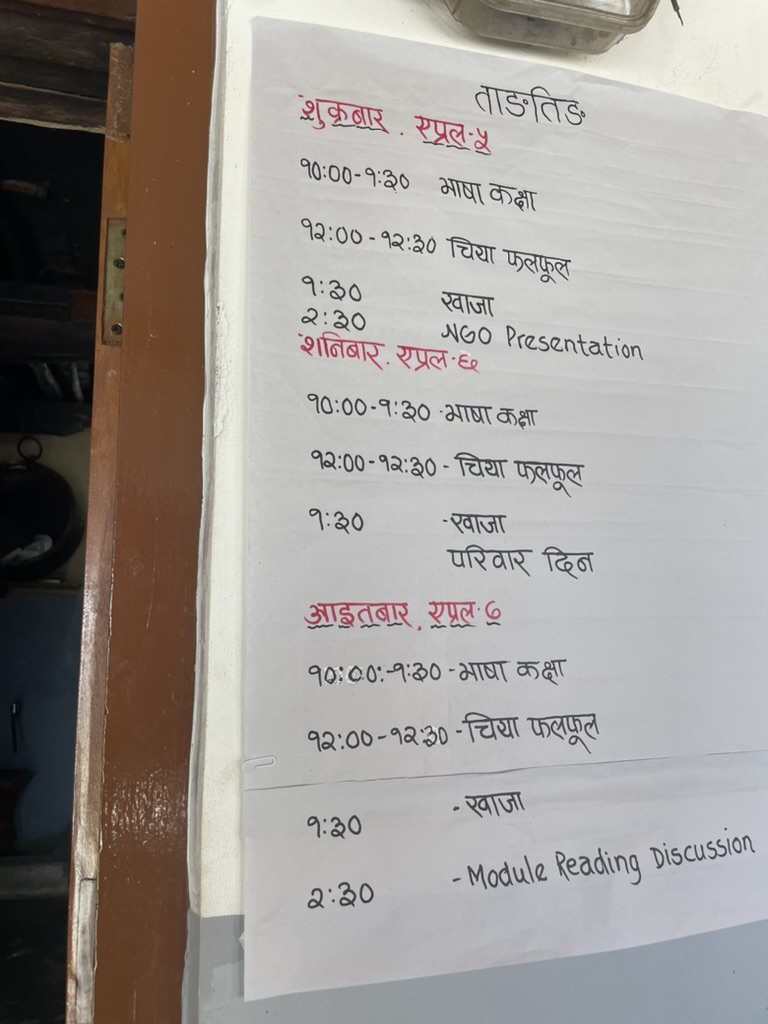 ताङतिङ
शुक्रबार . एप्रल ५
१०:००-१:३० भाषा कक्षा
१२:००-१२:३० चिया फलफूल
१:३० खाजा
२:३० NGO Presentation
शनिबार. एप्रल ६
१०:००-१:३० -भाषा कक्षा
१२:००-१२:३० - चिया फलफूल
१:३० -खाजा
परिवार दिन
आइतबार, एप्रल ७
१०:००:-१:३० -भाषा कक्षा
१२:००-१२:३० -चिया फलफूल
१:३० - खाजा
२:३० - Module Reading Discussion